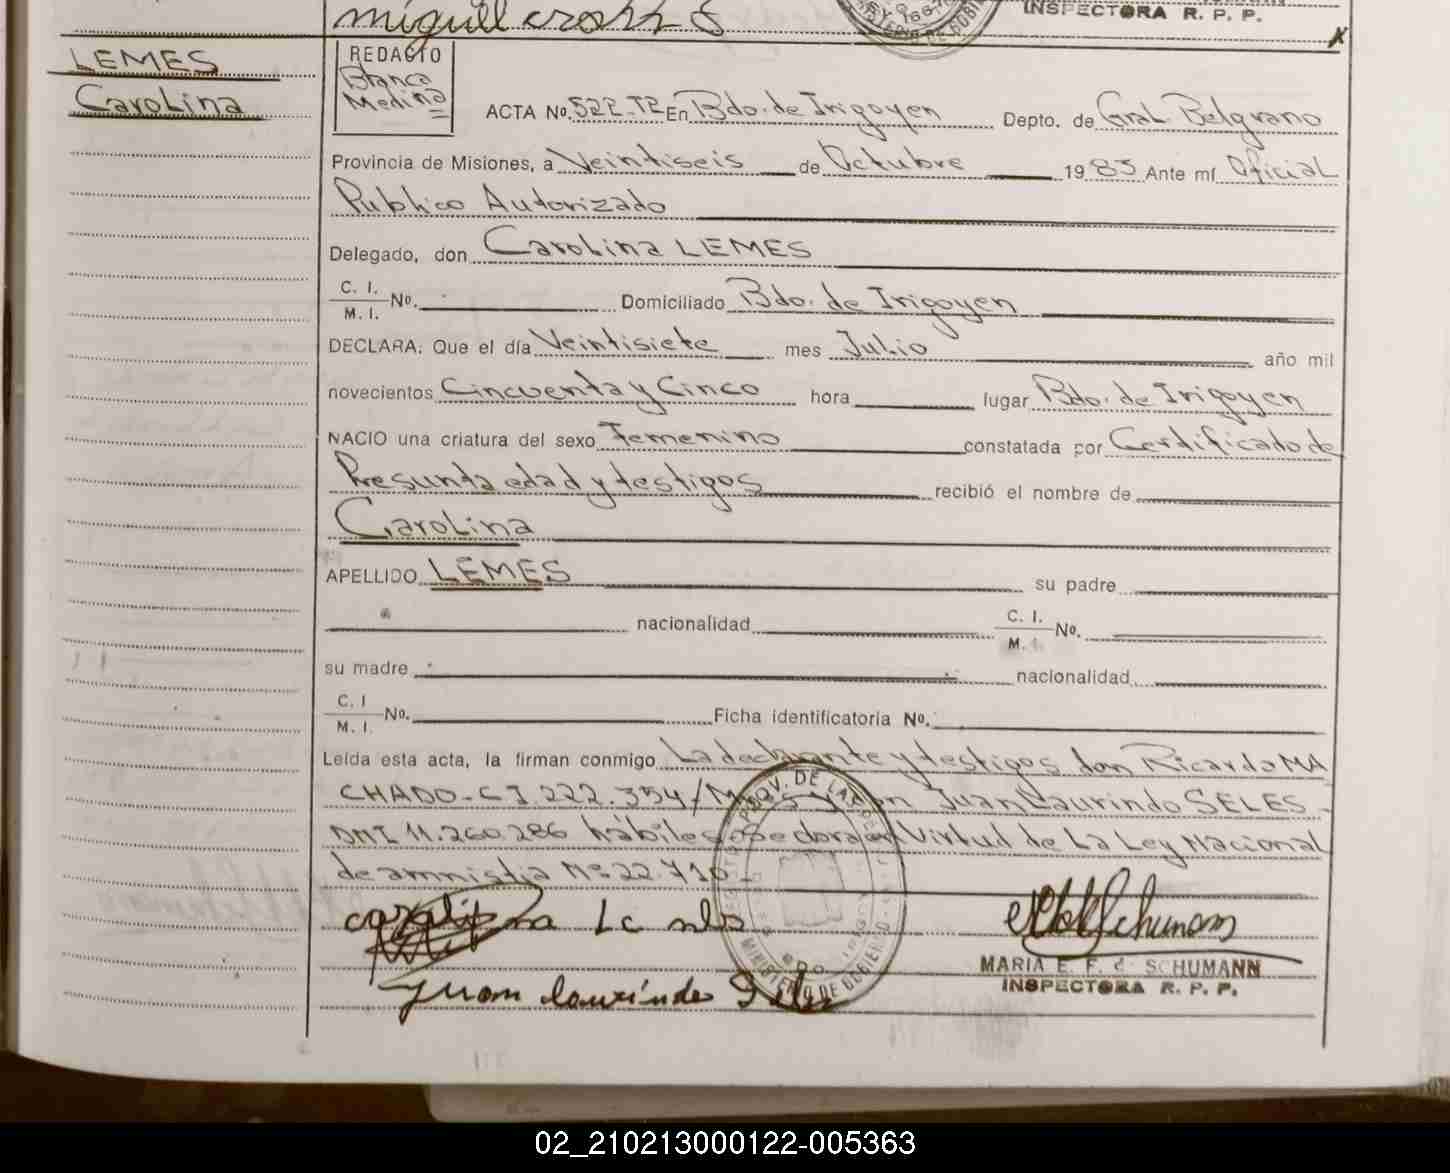 miguel
INSPECTORA R. P. P.
LEMES
Carolina
REDACTO
Blanca
Medina
ACTA No. 522-T2 En Bdo. de Irigoyen Depto. de Gral. Belgrano
Provincia de Misiones, a Veintiseis de Octubre 1983 Ante mí Oficial
Publico Autorizado
Delegado, don Carolina LEMES
C. I.
M. I. No. Domiciliado Bdo. de Irigoyen
DECLARA: Que el día Veintisiete mes Julio año mil
novecientos Cincuenta y Cinco hora lugar Bdo. de Irigoyen
NACIO una criatura del sexo Femenino constatada por Certificado de
Presunta edad y testigos recibió el nombre de
Carolina
APELLIDO LEMES su padre
nacionalidad C. I.
M. I. No.
su madre nacionalidad
C. I
M. I. No. Ficha identificatoria No.
Leída esta acta, la firman conmigo La declarante y testigos don Ricardo MA
CHADO-C I 222.354/M y don Juan Laurindo SELES-
DNI 11.260.286 hábiles en Virtud de La Ley Nacional
de amnistia Nº 22.710-
MINISTERIO DE GOBIERNO
MARIA E. F. d SCHUMANN
INSPECTORA R. P. P.
Juan laurindo
02_210213000122-005363